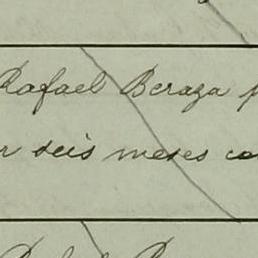 Rafael Beraza p
r seis meses co